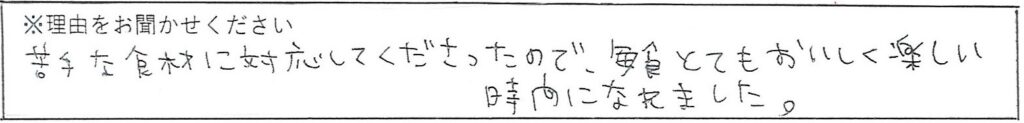 ※理由をお聞かせください
苦手な食材に対応してくださったので、毎食とてもおいしく楽しい
時間になれました。